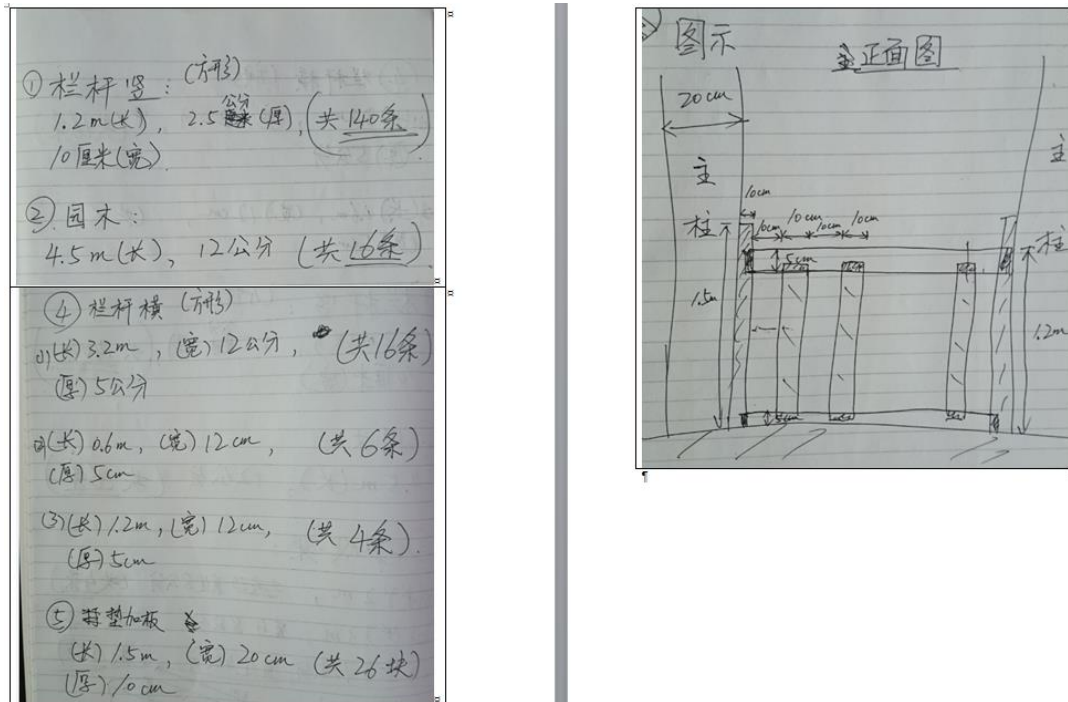 ① 栏杆竖：(方形)
1.2m(长)， 2.5公分(厚)，(共140条)
10厘米(宽)
② 园木：
4.5m(长)， 12公分 (共16条)
④ 栏杆横 (方形)
(1)(长) 3.2m ， (宽) 12公分， (共16条)
(厚) 5公分
(2)(长) 0.6m， (宽) 12cm， (共6条)
(厚) 5cm
(3)(长) 1.2m，(宽) 12cm， (共4条)
(厚) 5cm
⑤ 垫加板
(长) 1.5m， (宽) 20cm (共26块)
(厚) 10cm
图示
正面图
20cm
主
主
10cm
柱
10cm
10cm
10cm
10cm
柱
5cm
1.5m
1.2m
5cm